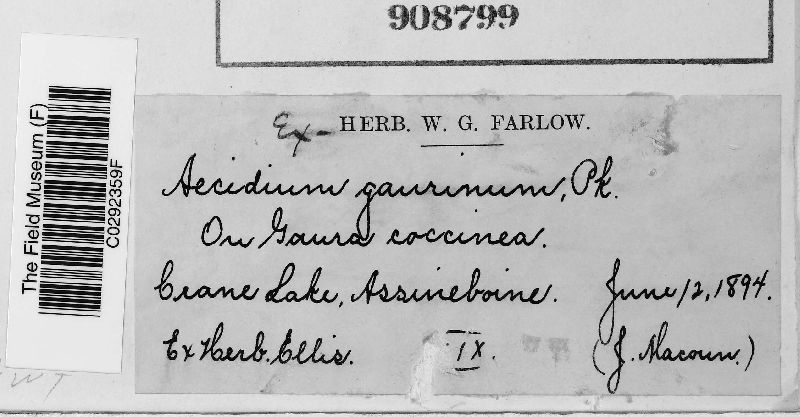 908799
The Field Museum (F)
C0292359F
Ex- HERB. W. G. FARLOW.
Aecidium gaurinum, Pk.
On Gaura coccinea.
Crane Lake, Assineboine. June 12, 1894.
Ex Herb. Ellis. IX. (J. Macoun.)